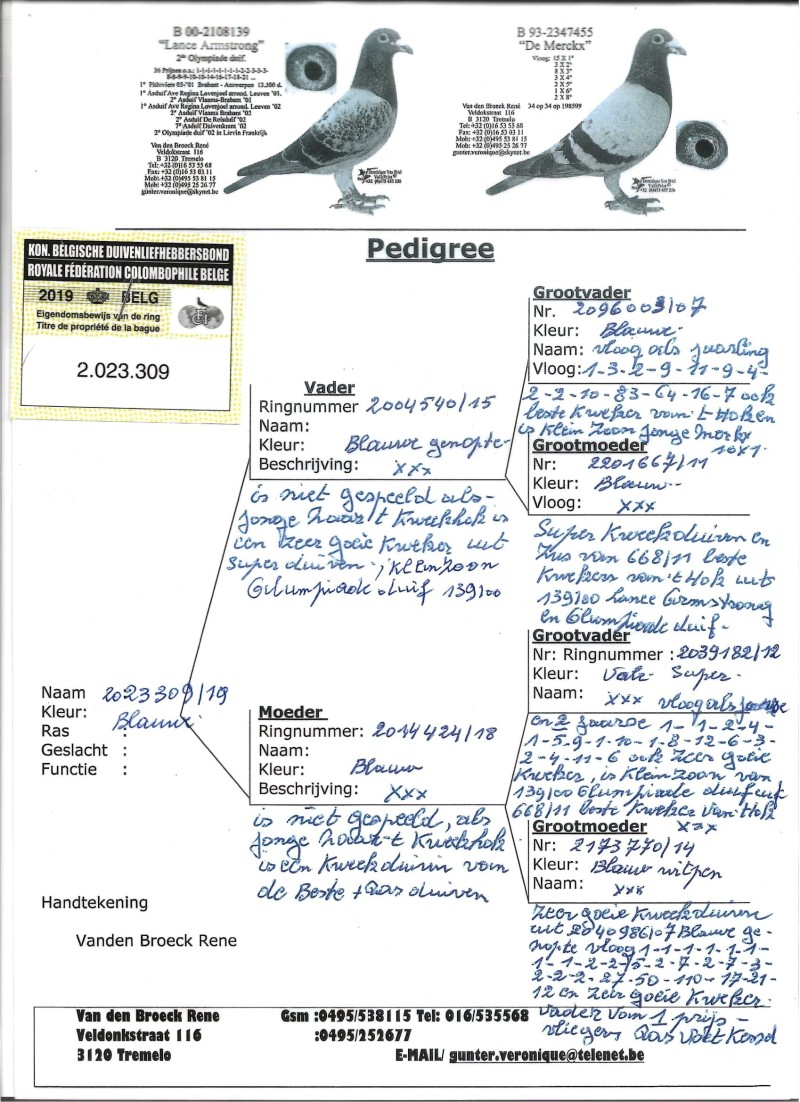 B 00-2108139
"Lance Armstrong"
2e Olympiade duif.
36 Prijzen o.a.: 1-1-1-1-1-1-1-2-2-3-3-
8-8-9-9-10-10-14-16-17-18-21 ...
1e Pithiviers 05-'01 Brabant - Antwerpen 13.500 d.
1e Asduif Ave Regina Lovenjoel arrond. Leuven '01.
2e Asduif Vlaams-Brabant '01
1e Asduif Ave Regina Lovenjoel arrond. Leuven '02
2e Asduif Vlaams Brabant '02
2e Asduif De Reisduif '02
7e Asduif Duivenkrant '02
2e Olympiade duif '02 in Lievin Frankrijk
Van den Broeck René
Veldokstraat 116
B 3120 Tremelo
Tel: +32 (0)16 53 55 68
Fax: +32 (0)16 53 03 11
Mob: +32 (0)495 53 81 15
Mob: +32 (0)495 25 26 77
gunter.veronique@skynet.be
B 93-2347455
"De Merckx"
Vloog: 15 X 1e
3 X 2e
8 X 3e
4 X 4e
2 X 5e
1 X 6e
2 X 8e
Van den Broeck René
34 op 34 op 198599
Veldokstraat 116
B 3120 Tremelo
Tel: +32 (0)16 53 55 68
Fax: +32 (0)16 53 03 11
Mob: +32 (0)495 53 81 15
Mob: +32 (0)495 25 26 77
gunter.veronique@skynet.be
Pedigree
KON. BELGISCHE DUIVENLIEFHEBBERSBOND
ROYALE FÉDÉRATION COLOMBOPHILE BELGE
2019 BELG
Eigendomsbewijs van de ring
Titre de propriété de la bague
2.023.309
Grootvader
Nr. 2096003/07
Kleur: Blauwe
Naam: vloog als jaarling
Vloog: 1-3-2-9-11-9-4-
2-2-10-83-64-16-7 ook
beste Kweker van 't Hok en
is Klein zoon Jonge Merkx
10x1.
Grootmoeder
Nr: 2201667/11
Kleur: Blauw
Vloog: xxx
Super Kweekduivin en
Zus van 668/11 beste
Kwekers van 't Hok uit
139/00 Lance Armstrong
en Olumpiade duif.
Vader
Ringnummer 2004540/15
Naam:
Kleur: Blauwe genopte
Beschrijving: xxx
is niet gespeeld als
jonge naar 't Kweekhok is
een zeer goeie Kweker uit
super duiven, Kleinzoon
Olumpiade duif 139/00
Grootvader
Nr: Ringnummer : 2039182/12
Kleur: Vale Super
Naam: xxx vloog als jonge
en 2 jaarse 1-1-2-4-
1-5-9-1-10-1-8-12-6-3-
2-4-11-6 ook zeer goeie
Kweker, is Klein zoon van
139/00 Olumpiade duif
668/11 beste Kweker van Hok
xxx
Naam 2023309/19
Kleur: Blauwe
Ras
Geslacht :
Functie :
Moeder
Ringnummer: 2014424/18
Naam:
Kleur: Blauw
Beschrijving: xxx
is niet gespeeld, als
jonge naar 't Kweekhok
is een Kweekduivin van
de Beste + Aas duiven
Grootmoeder
Nr: 2173770/14
Kleur: Blauw witpen
Naam: xxx
Zeer goeie Kweekduivin
uit 2040986/07 Blauwe ge-
nopte vloog 1-1-1-1-1-1-
1-1-2-2-5-2-7-2-7-3-
2-2-2-27-50-110-17-21-
12 en zeer goeie Kweker.
vader van 1 prijs-
vliegers Aas Vlet Kessel
Handtekening
Vanden Broeck Rene
Van den Broeck Rene Gsm :0495/538115 Tel: 016/535568
Veldonkstraat 116 :0495/252677
3120 Tremelo E-MAIL/ gunter.veronique@telenet.be